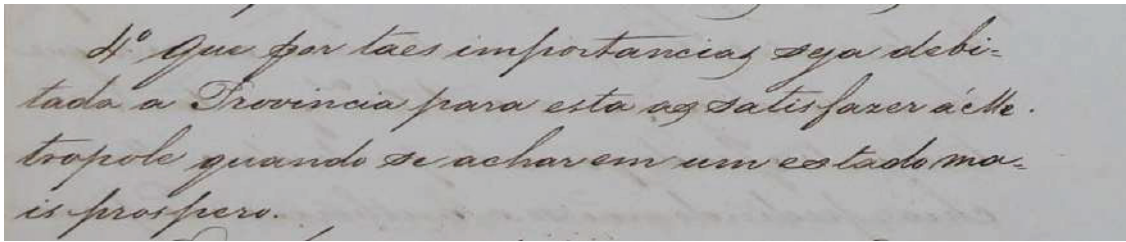 4º Que por taes importancias seja debi=
tada a Provincia para esta as satisfazer á Me-
tropole quando se achar em um estado ma=
is prospero.